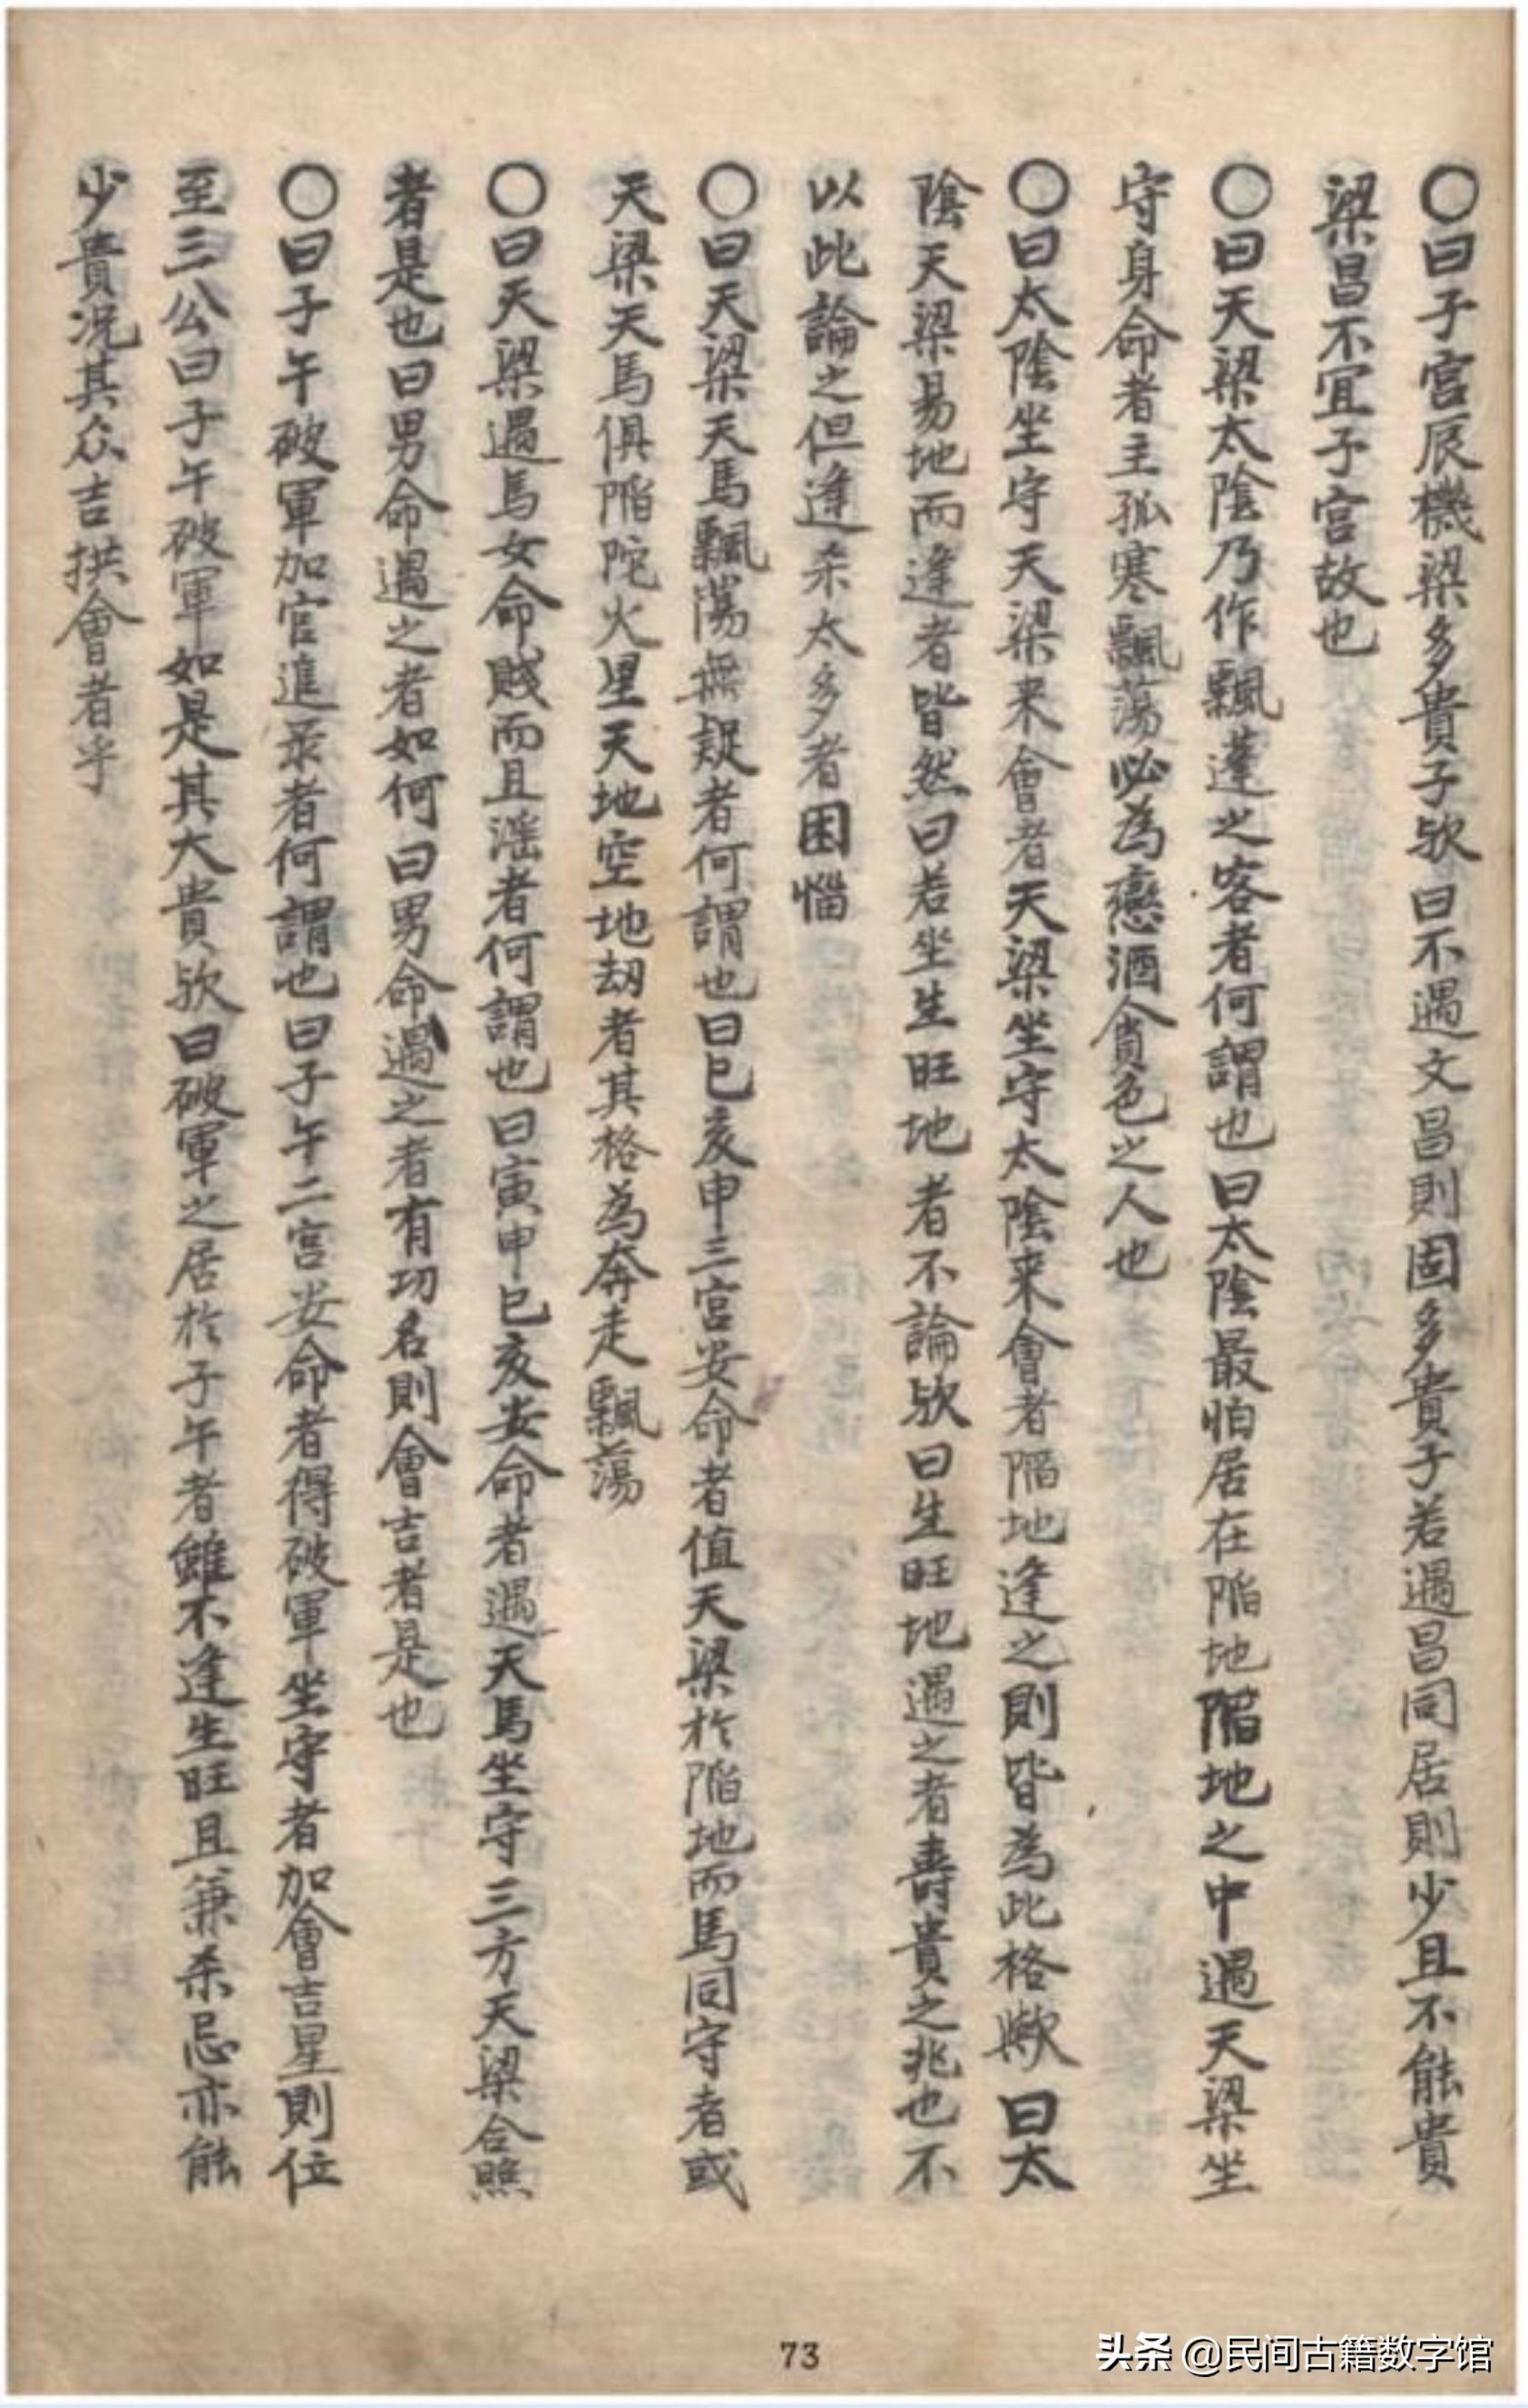 〇曰子宮辰機梁多貴子欤曰不遇文昌則固多貴子若遇昌同居則少且不能貴
梁昌不宜子宮故也
〇曰天梁太陰乃作飄蓬之客者何謂也曰太陰最怕居在陷地陷地之中遇天梁坐
守身命者主孤寒飄蕩必為戀酒貪色之人也
〇曰太陰坐守天梁来會者天梁坐守太陰来會者陷地逢之則皆為此格欤曰太
陰天梁易地而逢者皆然曰若坐生旺地者不論欤曰生旺地遇之者壽貴之兆也不
以此論之但逢杀太多者困惱
〇曰天梁天馬飄蕩無疑者何謂也曰巳亥申三宮安命者值天梁於陷地而馬同守者或
天梁天馬俱陷陀火星天地空地刼者其格為奔走飄蕩
〇曰天梁遇馬女命賤而且淫者何謂也曰寅申巳亥安命者遇天馬坐守三方天梁合照
者是也曰男命遇之者如何曰男命遇之者有功名則會吉者是也
〇曰子午破軍加官進祿者何謂也曰子午二宮安命者得破軍坐守者加會吉星則位
至三公曰子午破軍如是其大貴欤曰破軍之居於子午者雖不逢生旺且兼杀忌亦能
少貴况其众吉拱會者乎
73
头条 @民间古籍数字馆